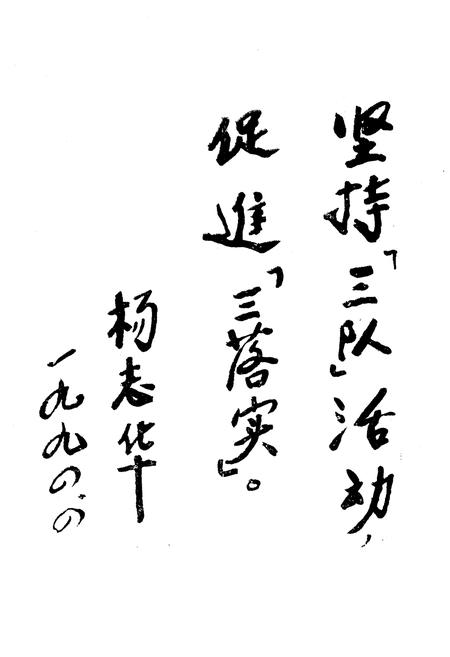 坚持「三队」活动，
促進「三落实」。
杨志华
一九九四.四